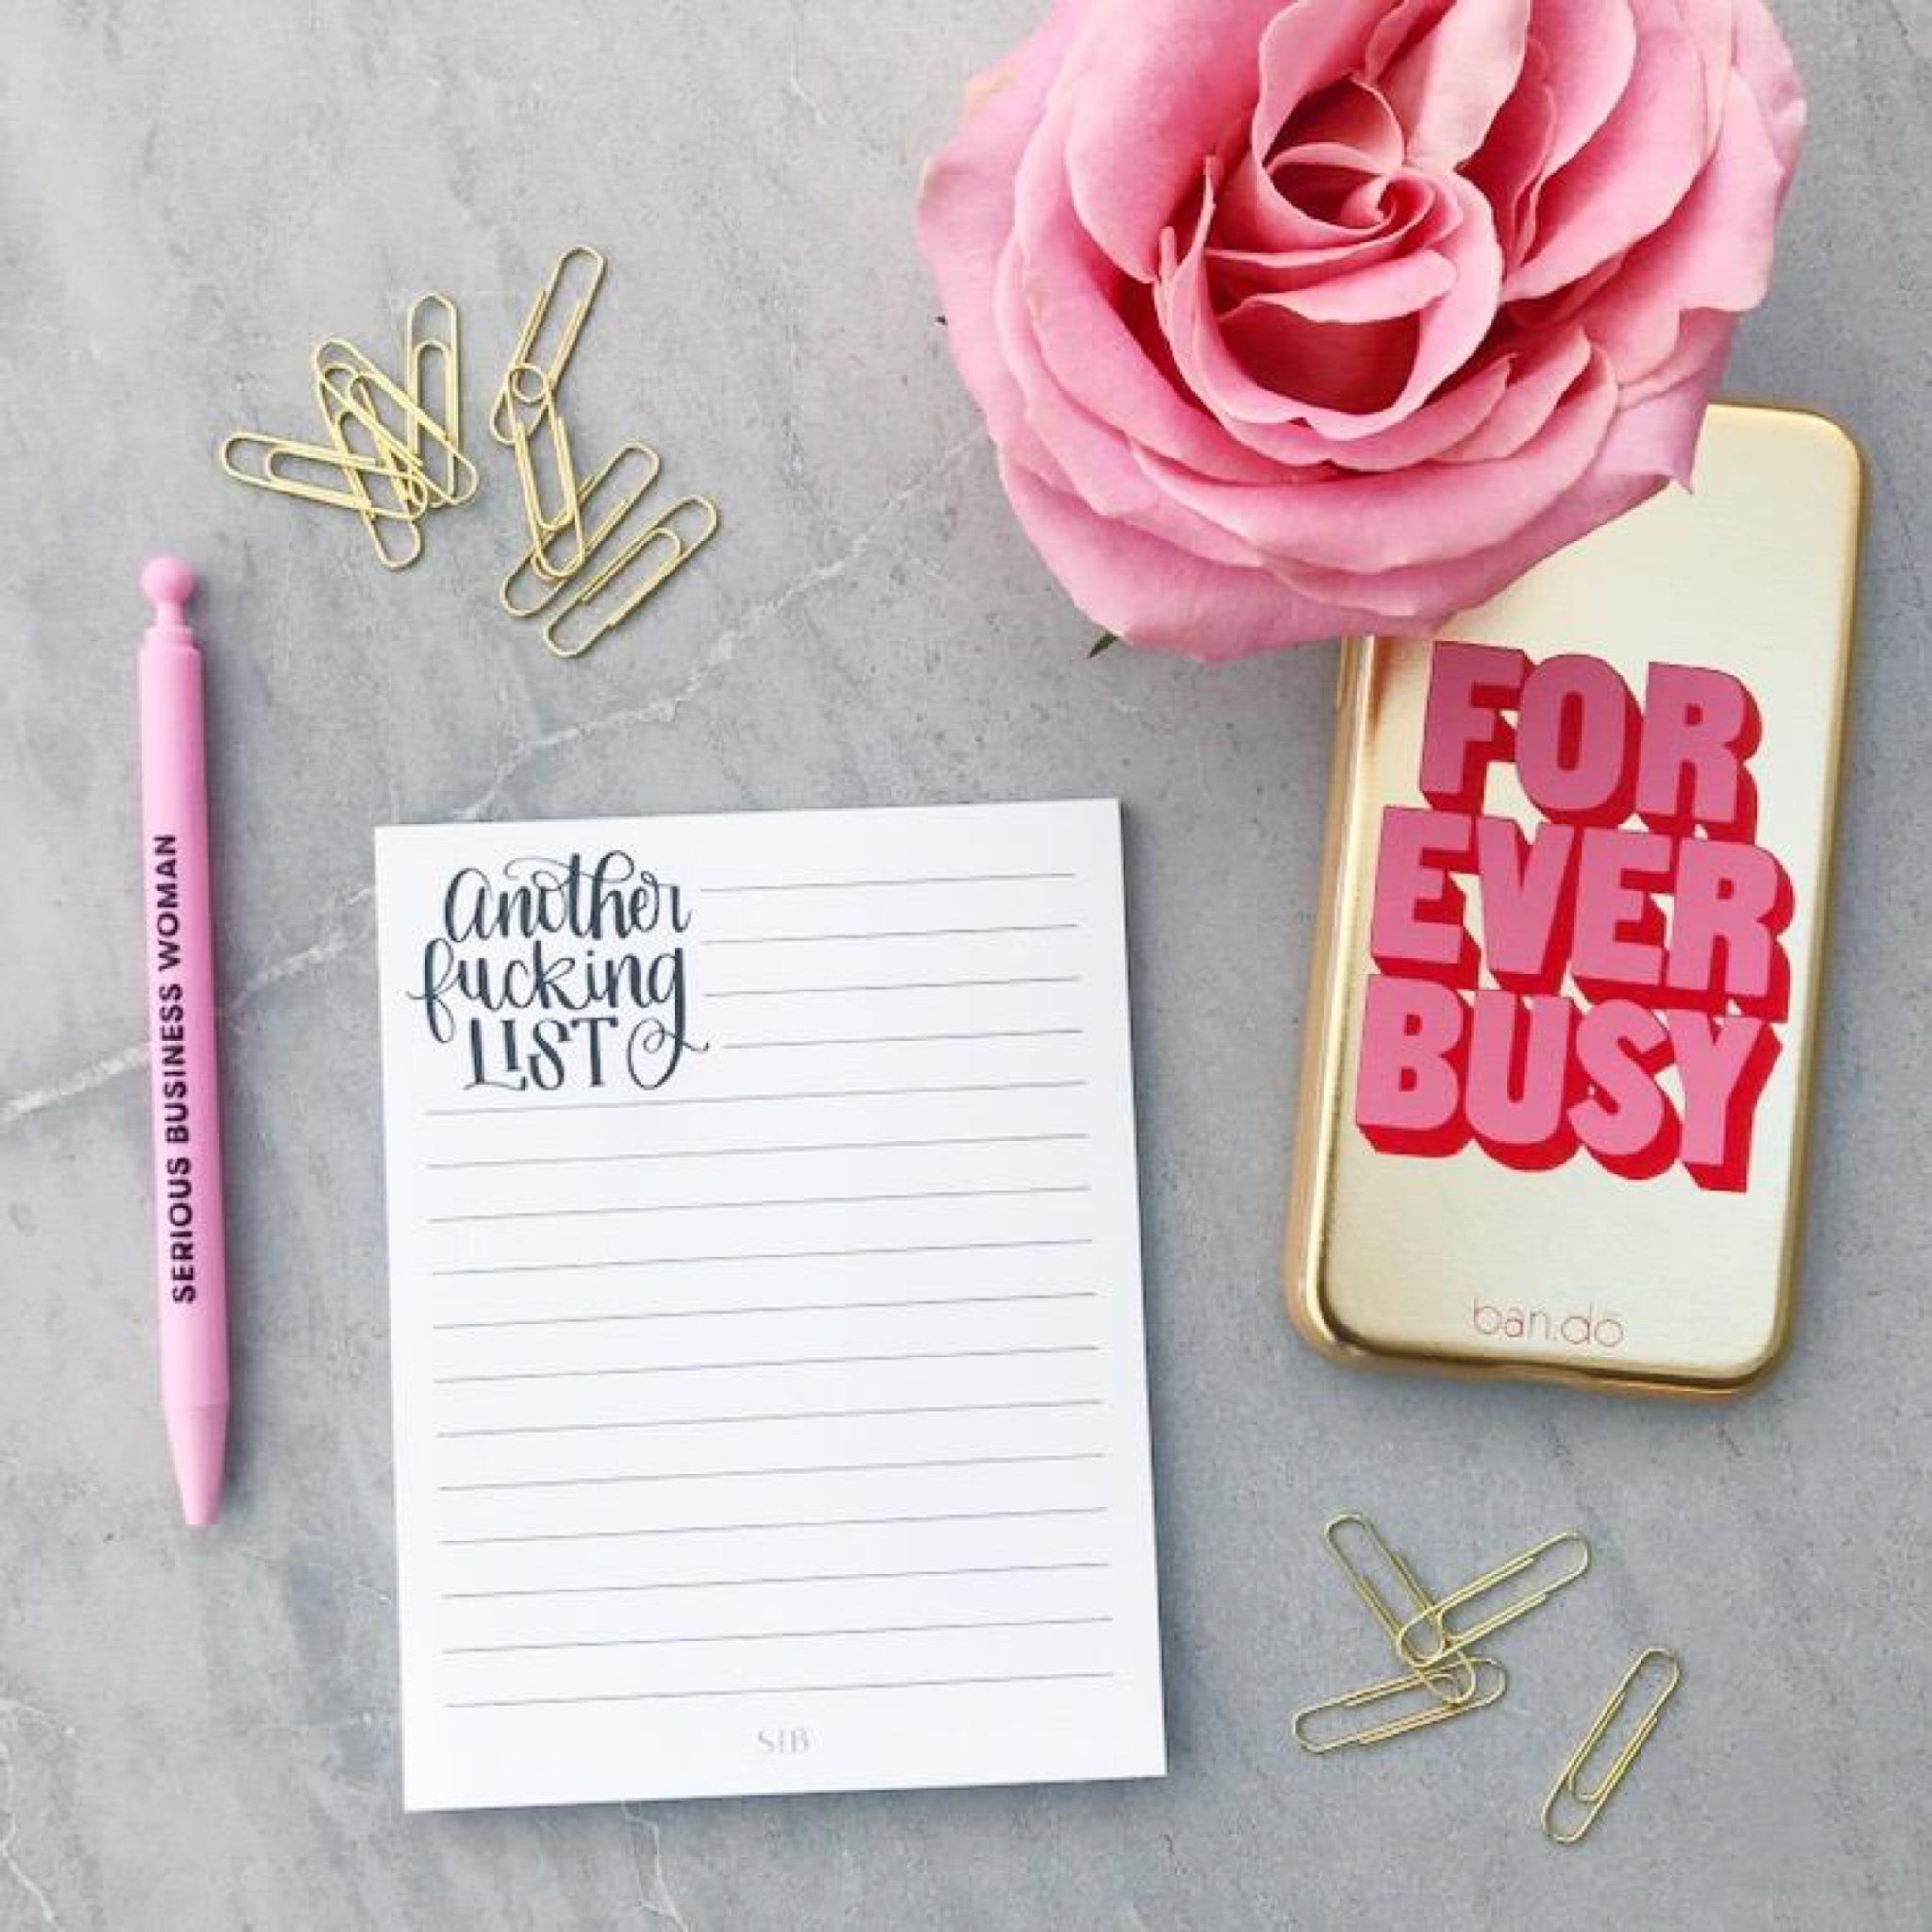 SERIOUS BUSINESS WOMAN
another
fucking
LIST
SIB
FOR
EVER
BUSY
ban.dō